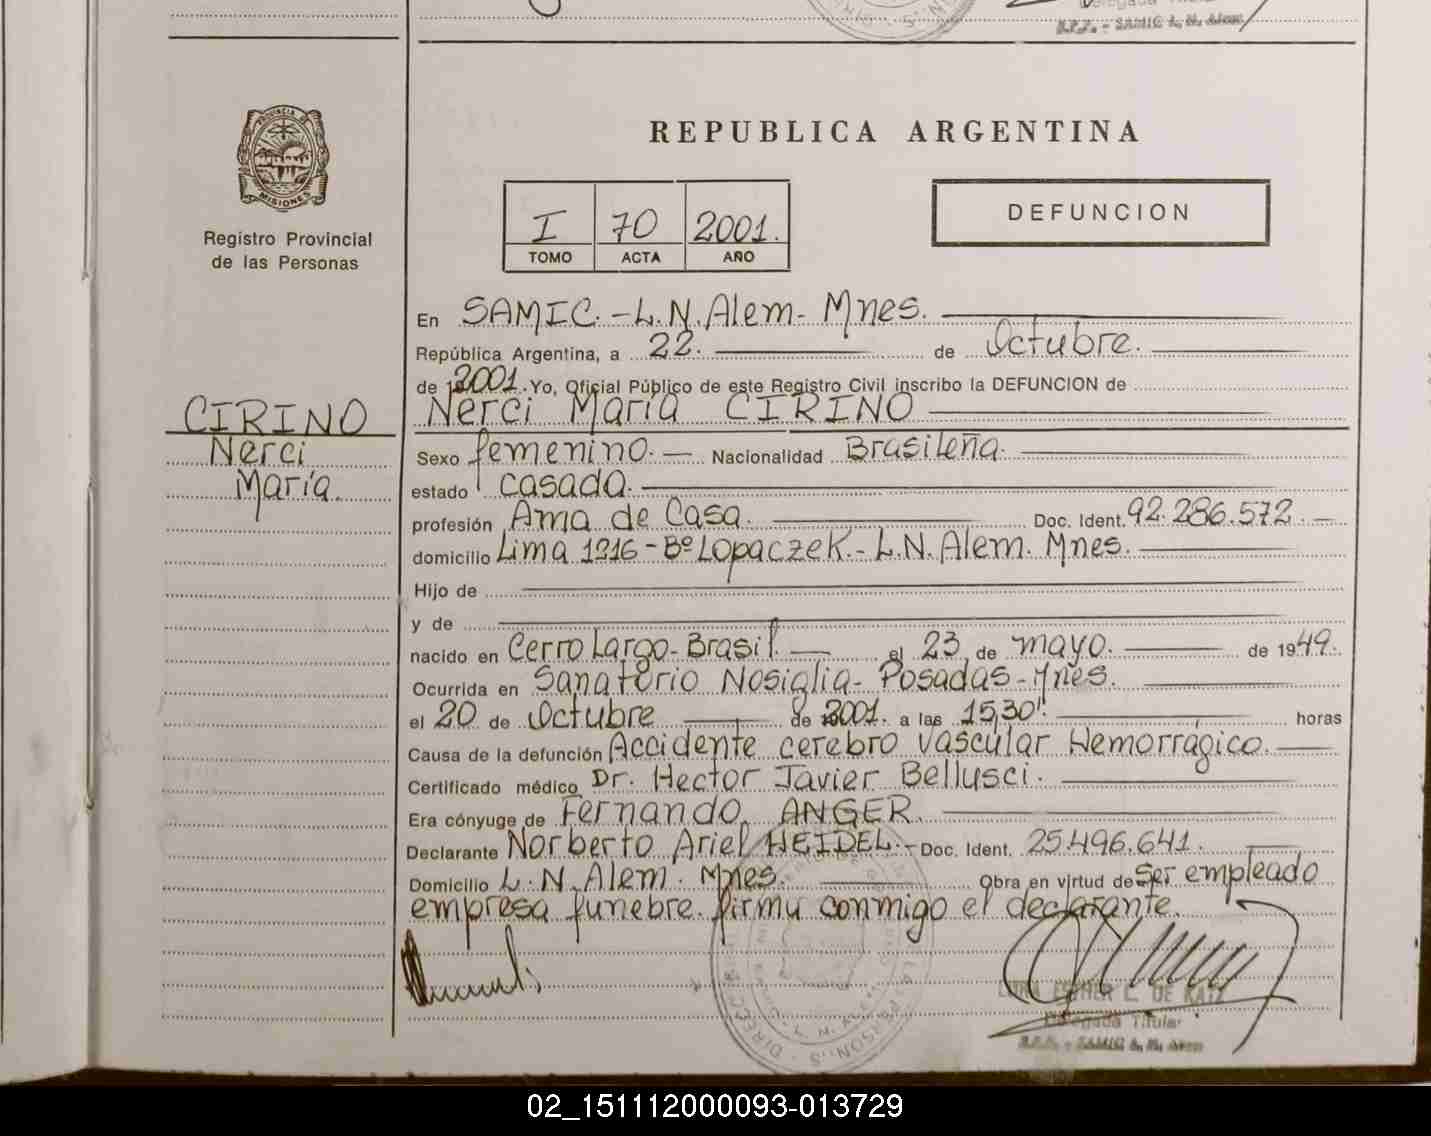 S.P.P. - SAMIC L. N. Alem
PROVINCIA DE
MISIONES
Registro Provincial
de las Personas
CIRINO
Nerci
María.
REPUBLICA ARGENTINA
I 70 2001.
TOMO ACTA AÑO
DEFUNCION
En SAMIC.-L.N.Alem- Mnes.
República Argentina, a 22. de Octubre.
de 2001. Yo, Oficial Público de este Registro Civil inscribo la DEFUNCION de
Nerci María CIRINO
Sexo femenino. Nacionalidad Brasileña.
estado casada.
profesión Ama de Casa. Doc. Ident. 92.286.572.
domicilio Lima 1216-Bº Lopaczek.-L.N.Alem. Mnes.
Hijo de
y de
nacido en Cerro Largo-Brasil. el 23 de mayo. de 1949.
Ocurrida en Sanatorio Nosiglia- Posadas-Mnes.
el 20 de Octubre de 2001. a las 15,30". horas
Causa de la defunción Accidente cerebro vascular Hemorrágico.
Certificado médico Dr. Hector Javier Bellusci.
Era cónyuge de Fernando ANGER.
Declarante Norberto Ariel HEIDEL.- Doc. Ident. 25.496.641.
Domicilio L.N.Alem. Mnes. Obra en virtud de ser empleado
empresa funebre. firmu conmigo el declarante.
ESTHER E. DE KATZ
Delegada Titular
S.P.P. - SAMIC L. N. Alem
02_151112000093-013729